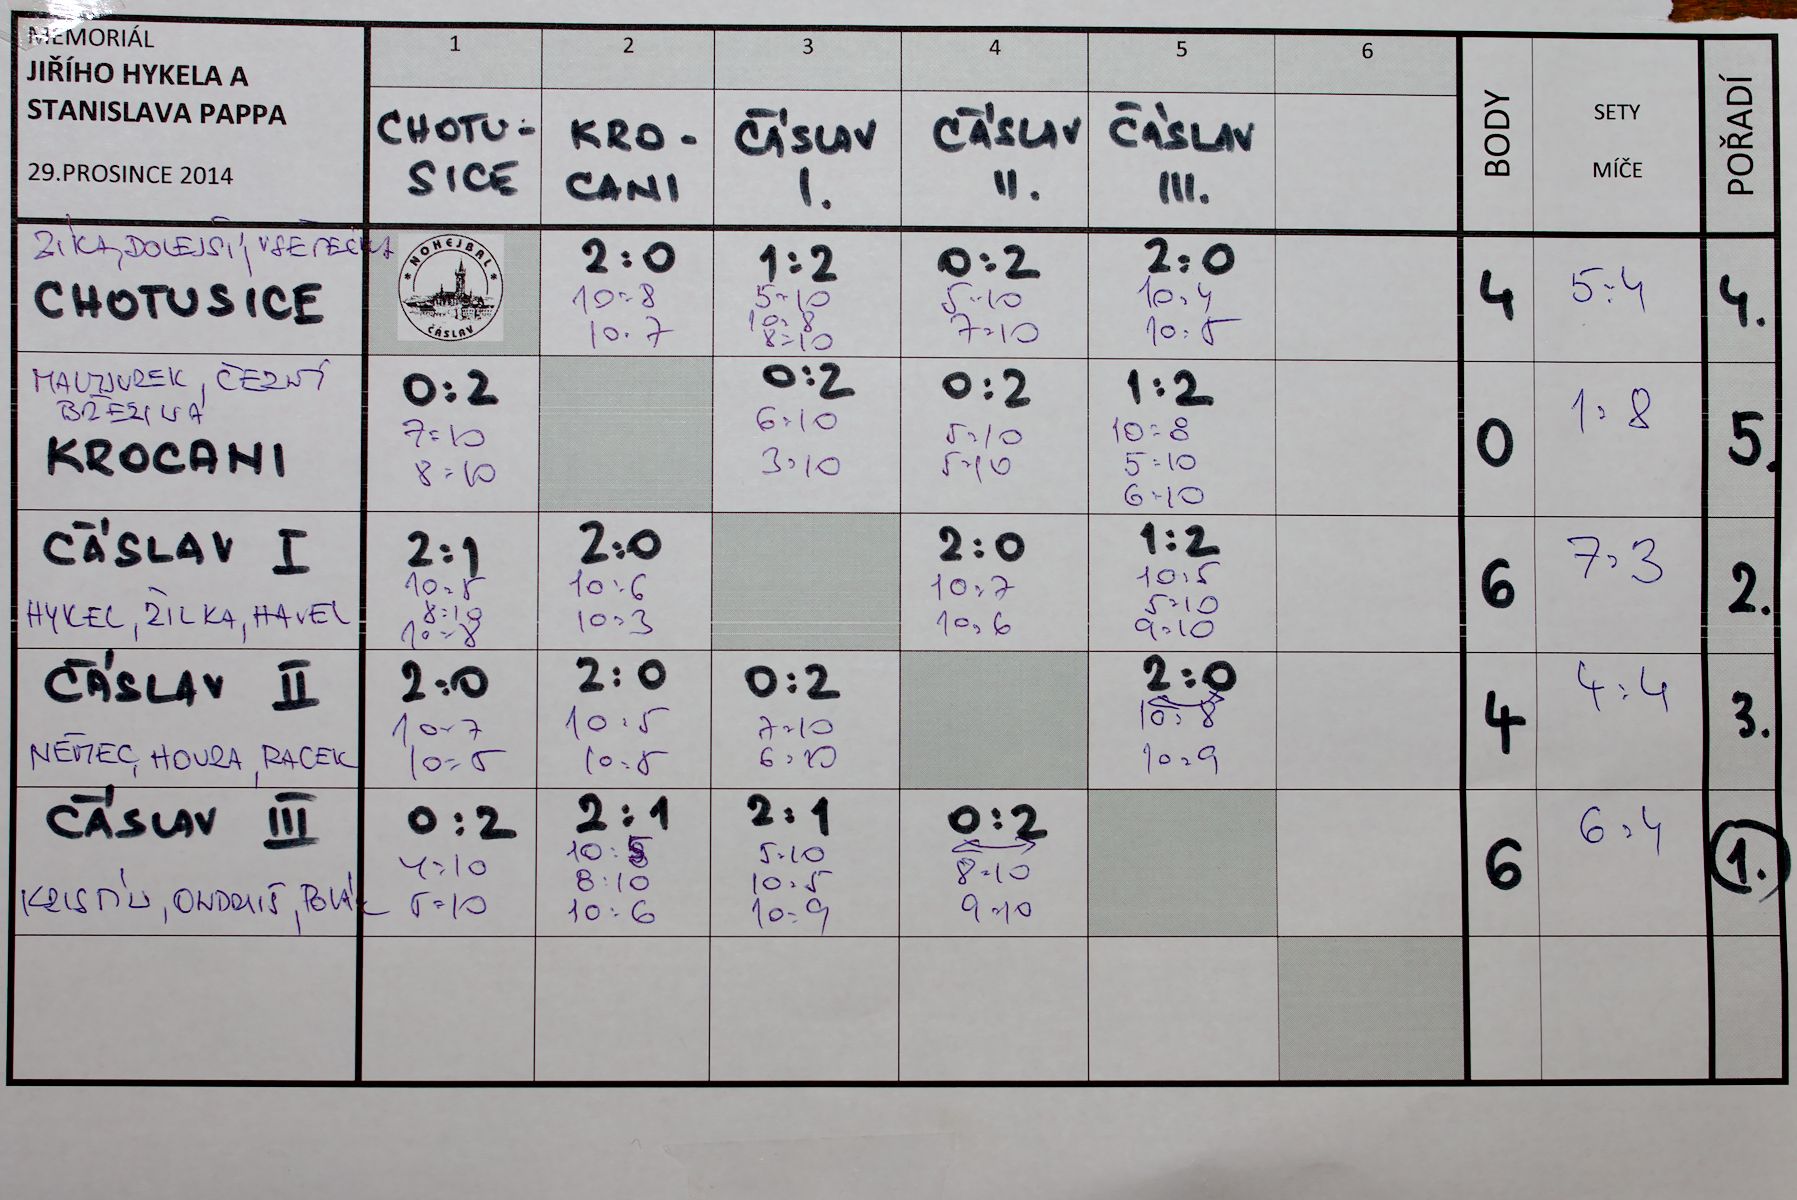 MEMORIÁL
JIŘÍHO HYKELA A
STANISLAVA PAPPA
29.PROSINCE 2014
1 2 3 4 5 6
CHOTU-
SICE
KRO-
CANI
ČÁSLAV
I.
ČÁSLAV
II.
ČÁSLAV
III.
BODY
SETY
MÍČE
POŘADÍ
ŽILKA, DOLEJŠÍ, VŠETEČKA
CHOTUSICE
NOHEJBAL
ČÁSLAV
2:0
10:8
10:7
1:2
5:10
10:8
8:10
0:2
5:10
7:10
2:0
10:4
10:5
4
5:4
4.
ČERNÝ
BŘEZINA
KROCANI
0:2
7:10
8:10
0:2
6:10
3:10
0:2
5:10
5:10
1:2
10:8
5:10
6:10
0
1:8
5.
ČÁSLAV I
HYKEL, ŽILKA, HAVEL
2:1
10:5
8:10
10:8
2:0
10:6
10:3
2:0
10:7
10:6
1:2
10:5
5:10
9:10
6
7:3
2.
ČÁSLAV II
NĚMEC, HOURA, RACEK
2:0
10:7
10:5
2:0
10:5
10:5
0:2
7:10
6:10
2:0
10:8
10:9
4
4:4
3.
ČÁSLAV III
KRISTIÁN, ONDRUŠ, POLÁK
0:2
4:10
5:10
2:1
10:5
8:10
10:6
2:1
5:10
10:5
10:9
0:2
8:10
9:10
6
6:4
1.